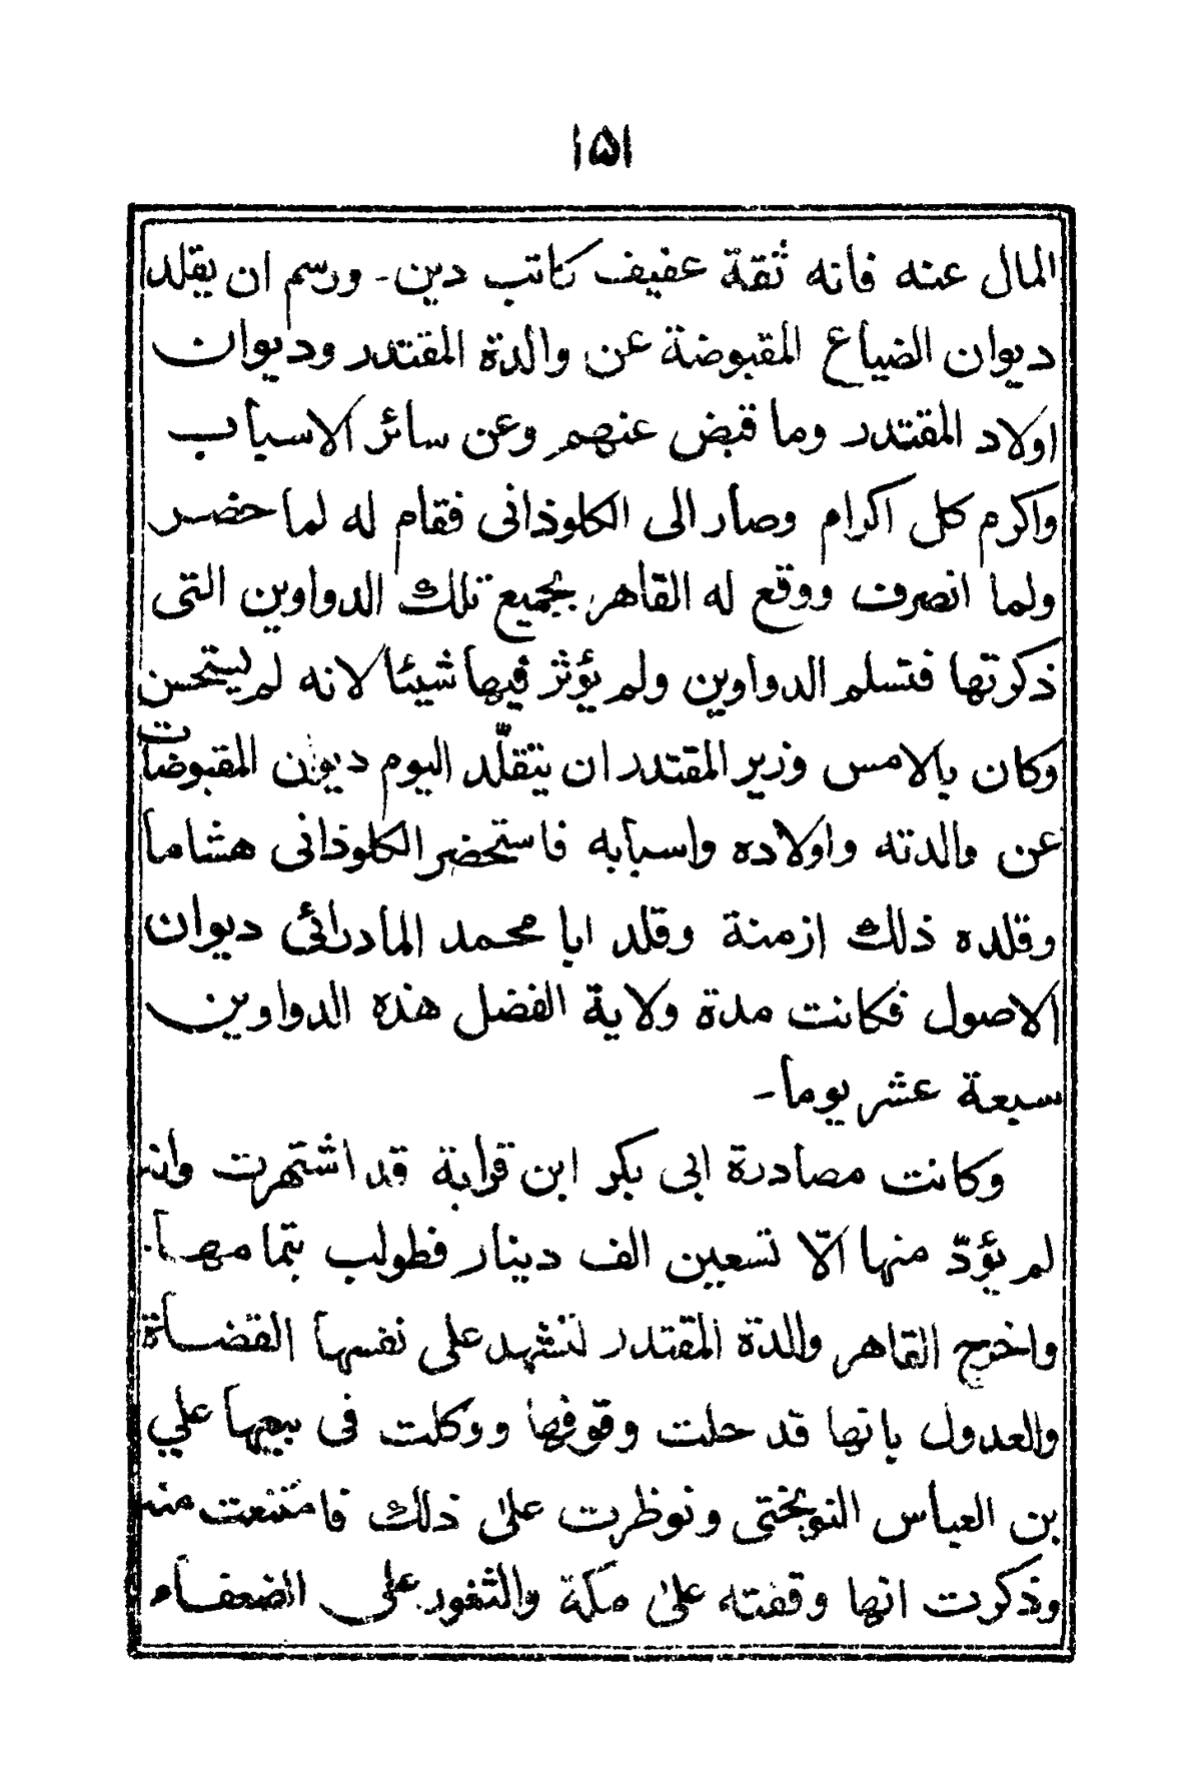 ١٥١
المال عنه فانه ثقة عفيف كاتب دين - ورسم ان يقلد
ديوان الضياع المقبوضة عن والدة المقتدر وديوان
اولاد المقتدر وما قبض عنهم وعن سائر الاسباب
واكرم كل اكرام وصار الى الكلوذانى فقام له لما حضر
ولما انصرف ووقع له القاهر بجميع تلك الدواوين التى
ذكرتها فتسلم الدواوين ولم يؤثر فيها شيئا لانه لم يستحسن
وكان بالامس وزير المقتدر ان يتقلّد اليوم ديوان المقبوضات
عن والدته واولاده واسبابه فاستحضر الكلوذانى هشاما
وقلده ذلك ازمنة وقلد ابا محمد المادرائى ديوان
الاصول فكانت مدة ولاية الفضل هذه الدواوين
سبعة عشر يوما -
وكانت مصادرة ابى بكر ابن قرابة قد اشتهرت وانه
لم يؤدّ منها الّا تسعين الف دينار فطولب بتمامها.
واخرج القاهر والدة المقتدر لتشهد على نفسها القضاة
والعدول بانها قد حلت وقوفها ووكلت فى بيعها علي
بن العباس النوبختى ونوظرت على ذلك فامتنعت منه
وذكرت انها وقفته على مكة والثغور على الضعفاء